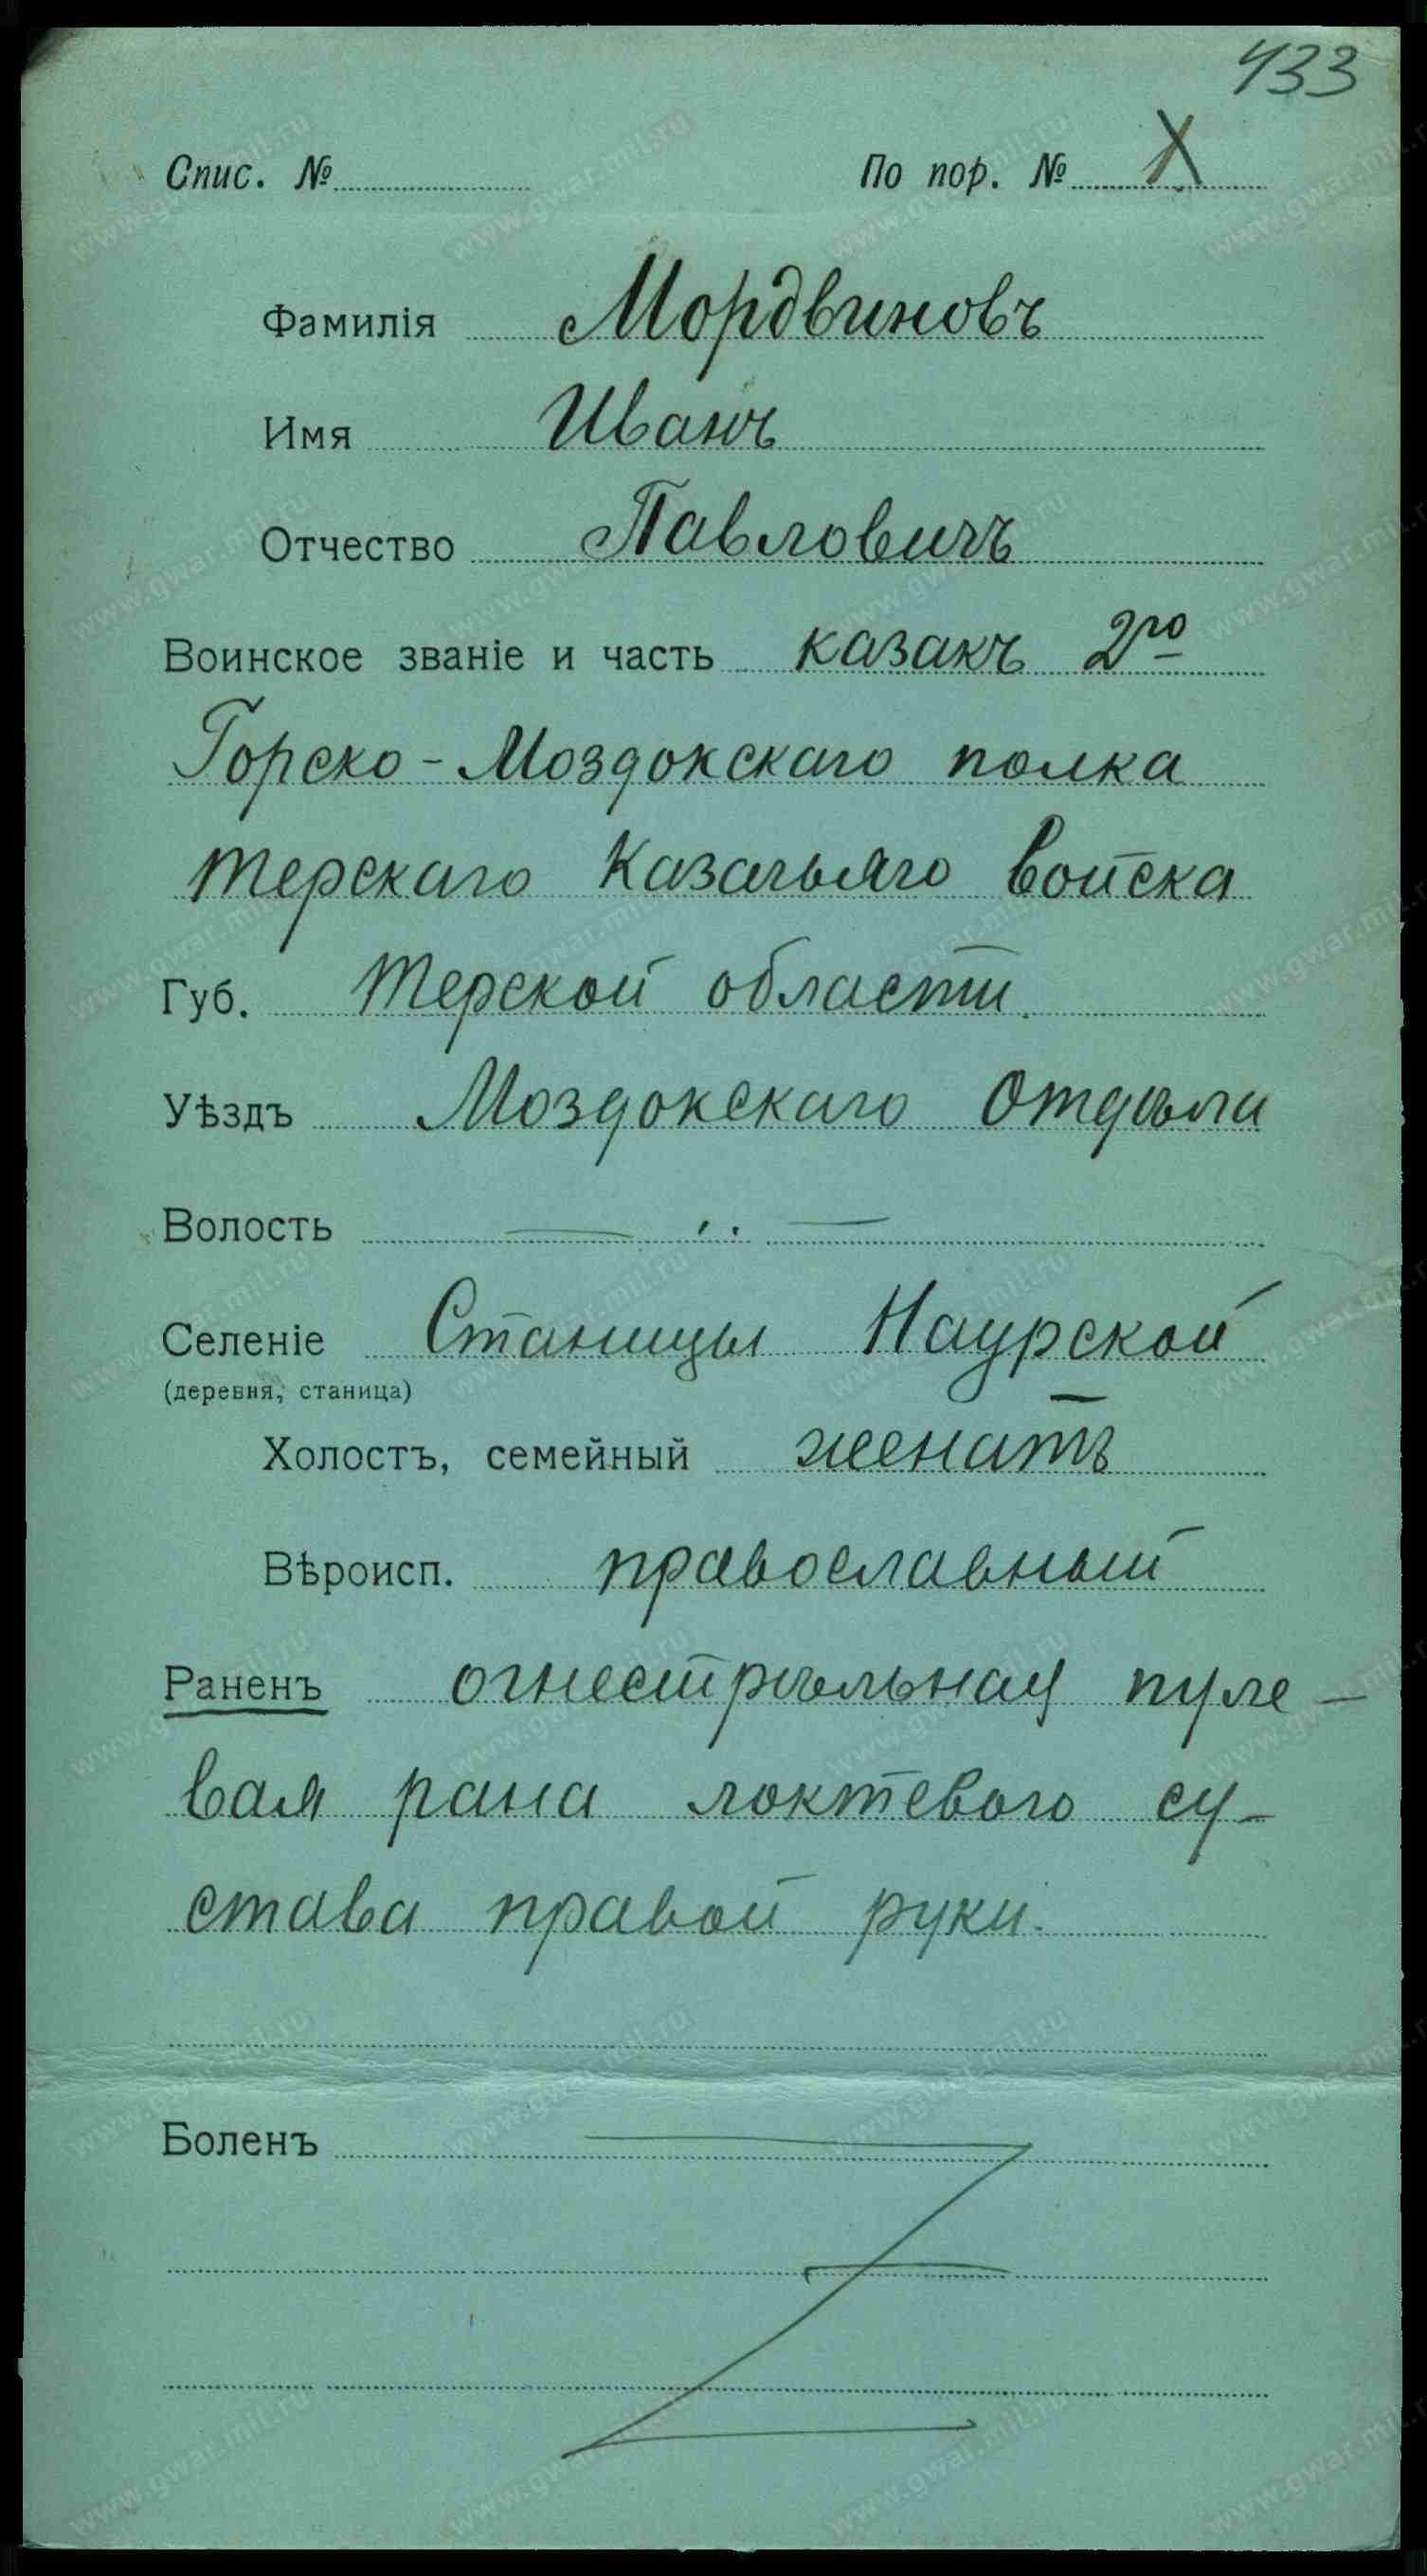 433
Спис. № По пор. № X
Фамилія Мордвиновъ
Имя Иванъ
Отчество Павловичъ
Воинское званіе и часть казакъ 2го
Горско-Моздокскаго полка
Терскаго Казачьяго Войска
Губ. Терской области.
Уѣздъ Моздокскаго Отдѣла
Волость — ,, —
Селеніе Станицы Наурской
(деревня, станица)
Холостъ, семейный женатъ
Вѣроисп. православный
Раненъ огнестрѣльная пуле-
вая рана локтевого су-
става правой руки.
Боленъ
www.gwar.mil.ru